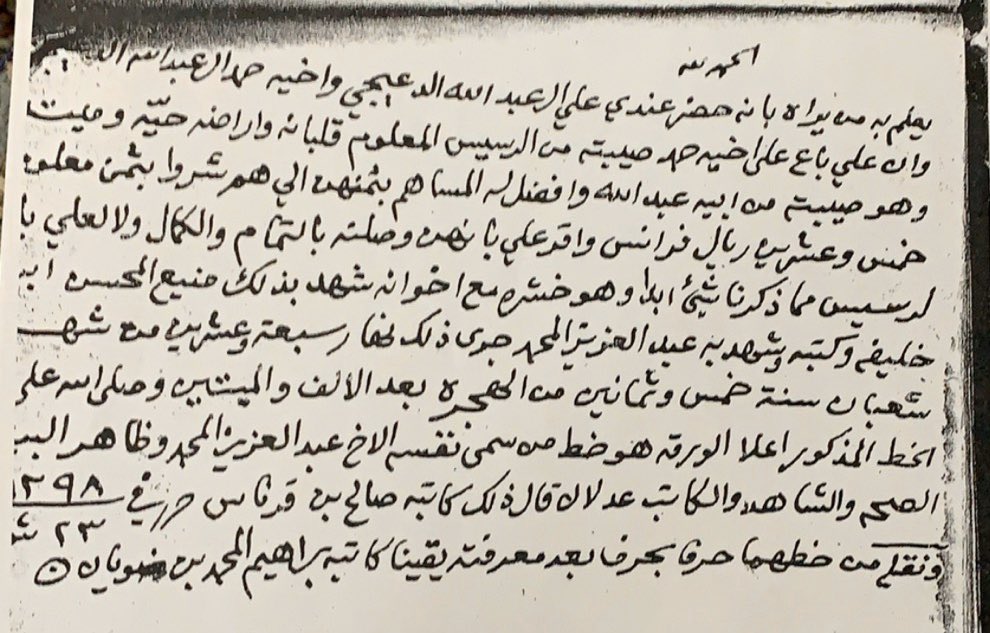 الحمد لله
يعلم به من يراه بانه حضر عندي علي العبد الله الدعيجي واخيه حمد العبد الله
وان علي باع على اخيه حمد صيبته من الرسيس المعلوم قلبانه واراضه حيّه وميت
وهو صيبته من ابيه عبد الله وافضل له المساهم بثمنهن الي هم شروا بثمن معلوم
خمس وعشرين ريال فرانس واقر علي بانهن وصلنه بالتمام والكمال ولا لعلي با
لرسيس مما ذكرنا شيئ ابدا وهو خشره مع اخوانه شهد بذلك منيع المحسن
خليفه وكتبه وشهد به عبد العزيز المحمد جرى ذلك نهار سبعة وعشرين من شهـ
شعبان سنة خمس وثمانين من الهجره بعد الالف والميتين وصلى الله على
الخط المذكور اعلا الورقه هو خط من سمى نفسه الاخ عبد العزيز المحمد وظاهر
الصحه والشاهد والكاتب عدلان قال ذلك كاتبه صالح بن قرناس حرر في ١٢٩٨
٢٣
ونقله من خطهما حرفا بحرف بعد معرفته يقينا كاتبه براهيم المحمد بن